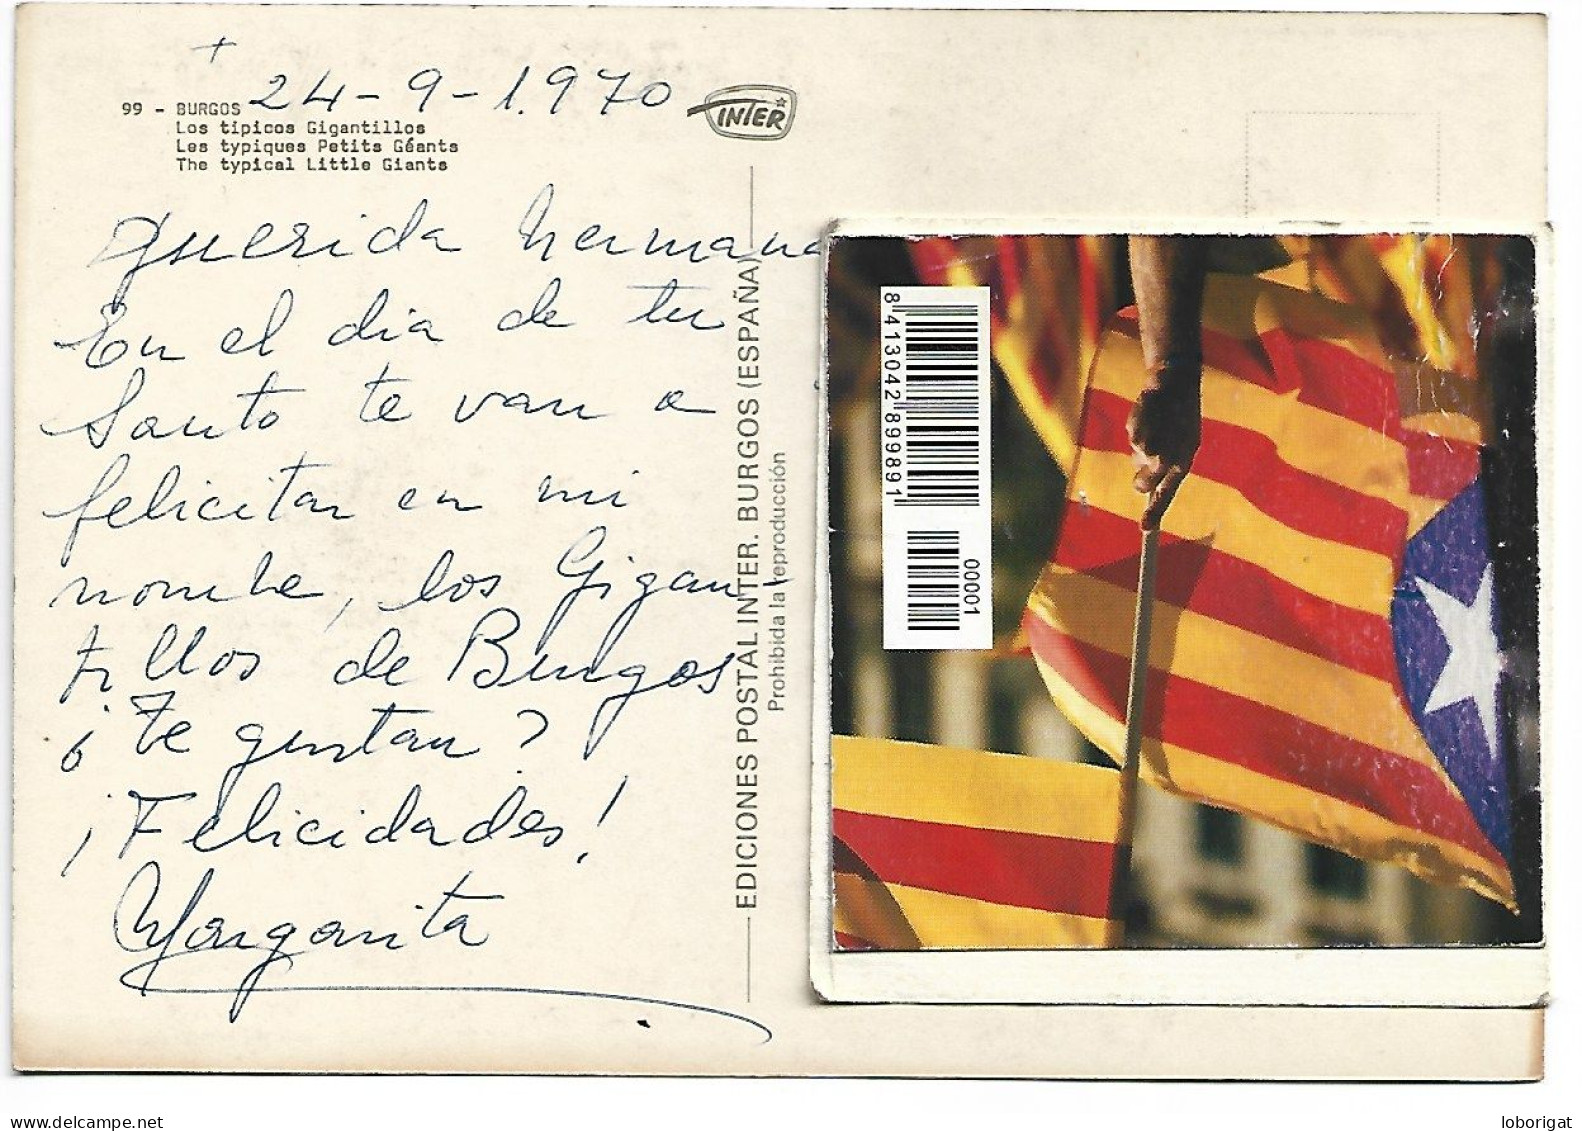 +
24-9-1.970
99 - BURGOS
Los típicos Gigantillos
Les typiques Petits Géants
The typical Little Giants
INTER
Querida hermana
En el dia de tu
Santo te van a
felicitar en mi
nombre, los Gigan-
tillos de Burgos
¿Te gustan?
¡Felicidades!
Margarita
EDICIONES POSTAL INTER. BURGOS (ESPAÑA)
Prohibida la reproducción
8 413042 899891
00001
loborigat
delcampe.net